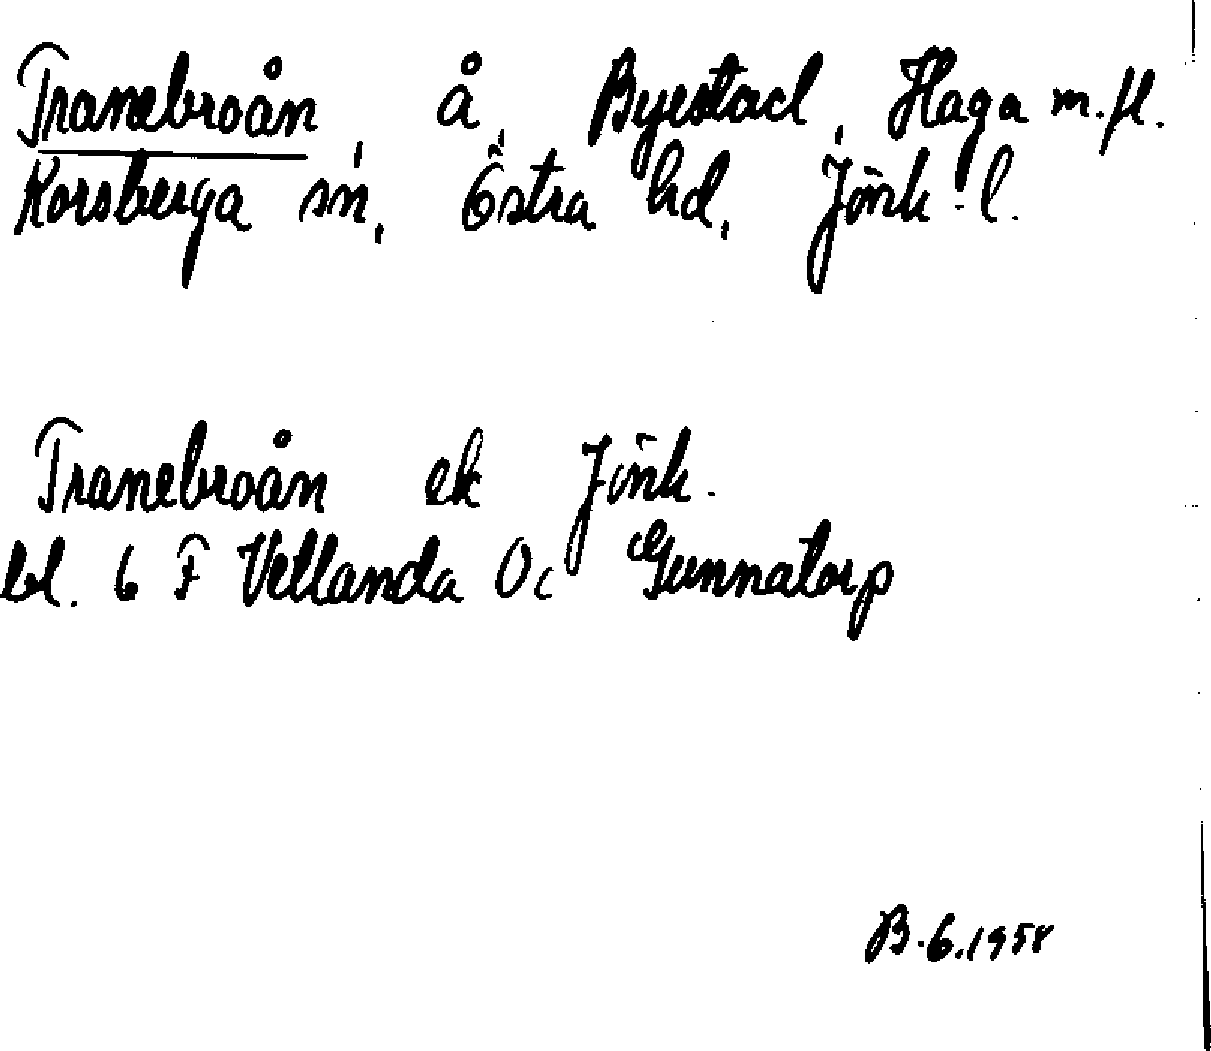 Tranebroån, å, Byestad, Haga m.fl.
Korsberga sn, Östra hd, Jönk. l.
Tranebroån ek Jönk.
bl. 6 F Vetlanda Oc Gunnatorp
B.6.1958